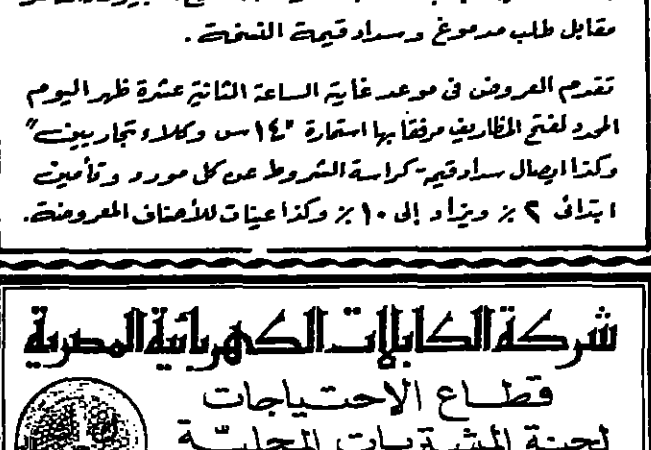 مقابل طلب مدموغ وسداد قيمة النسخة .
تقدم العروض فى موعد غايته الساعة الثانية عشرة ظهر اليوم
المحدد لفتح المظاريف مرفقا بها استمارة "١٤ س وكلاء تجاريين"
وكذا ايصال سداد قيمة كراسة الشروط عن كل مورد وتأمين
ابتدائى ٢ ٪ ويزاد إلى ١٠ ٪ وكذا عينات للأصناف المعروضة.
شركة الكابلات الكهربائية المصرية
قطاع الاحتياجات
لجنة المشتريات المحلية